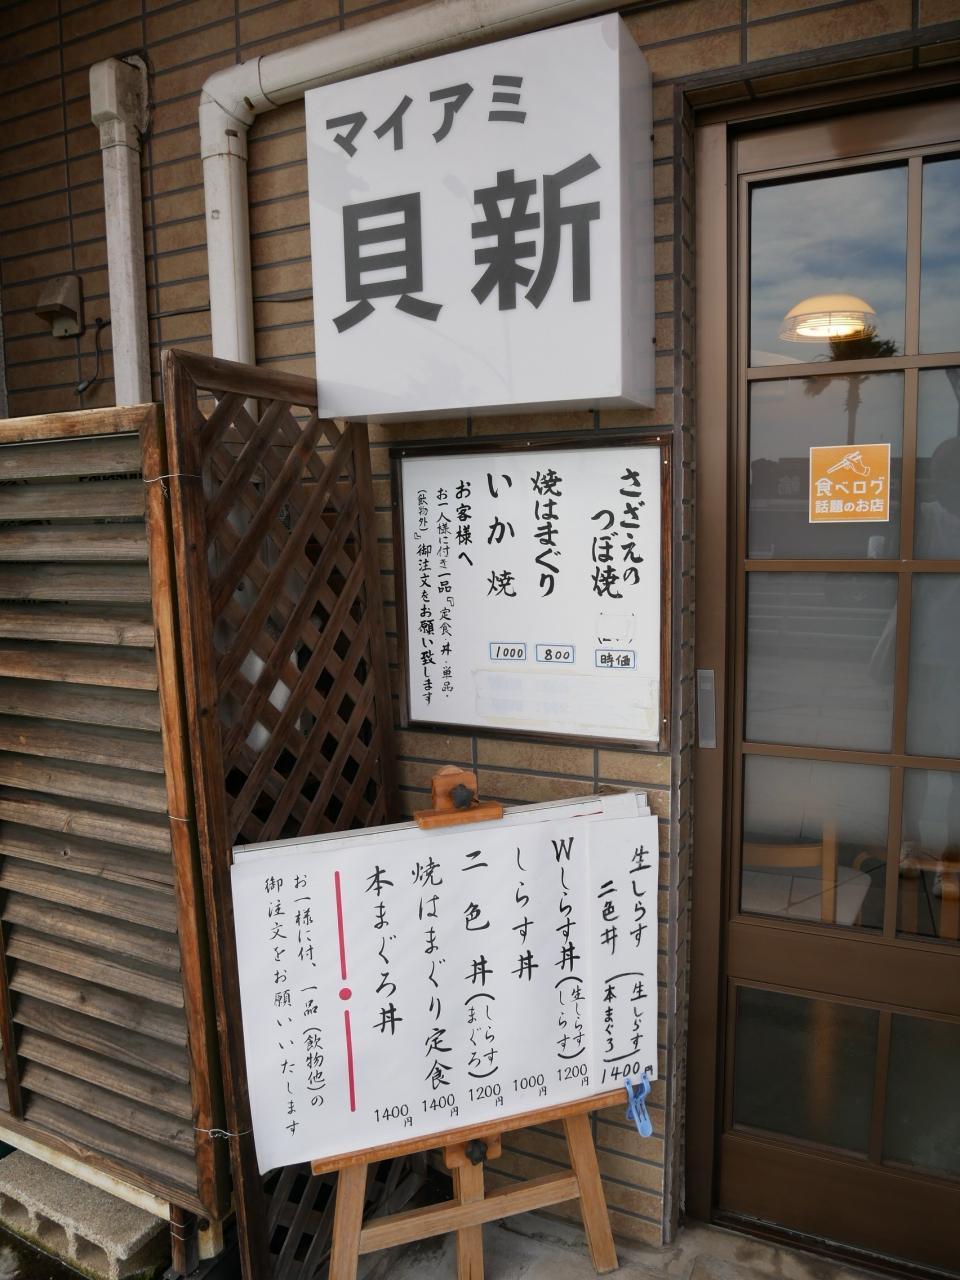 マイアミ
貝新
さざえの
つぼ焼
時価
焼はまぐり
800
いか焼
1000
お客様へ
お一人様に付き一品『定食・丼・単品・
(飲物外)』御注文をお願い致します
食べログ
話題のお店
生しらす
二色丼(生しらす
本まぐろ)
1400円
Wしらす丼(生しらす
しらす)
1200円
しらす丼
1000円
二色丼(しらす
まぐろ)
1200円
焼はまぐり定食
1400円
本まぐろ丼
1400円
お一様に付、一品(飲物他)の
御注文をお願いいたします